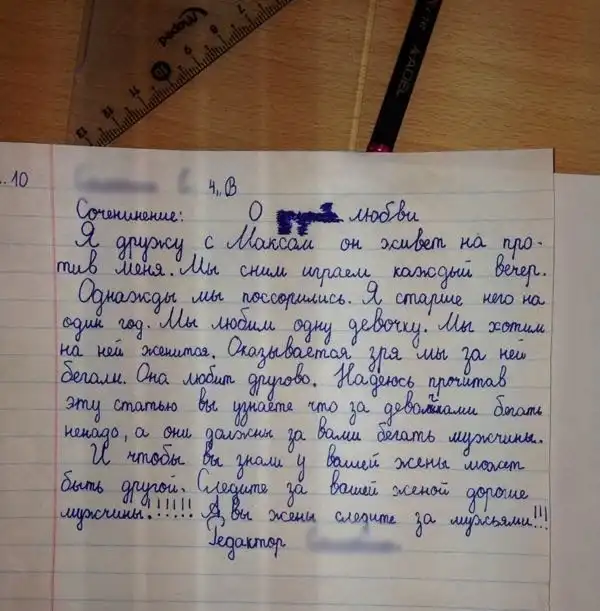 . 10
4„В
Соченинение: О любви
Я дружу с Максом он живет на про-
тив меня. Мы сним играем каждый вечер.
Однажды мы поссорились. Я старше него на
один год. Мы любим одну девочку. Мы хотим
на ней женится. Оказывается зря мы за ней
бегали. Она любит другово. Надеюсь прочитав
эту статью вы узнаете что за девочками бегать
ненадо, а они должны за вами бегать мужчины.
И чтобы вы знали у вашей жены может
быть другой. Следите за вашей женой дорогие
мужчины!!!!!! А вы жены следите за мужьями!!!
Редактор